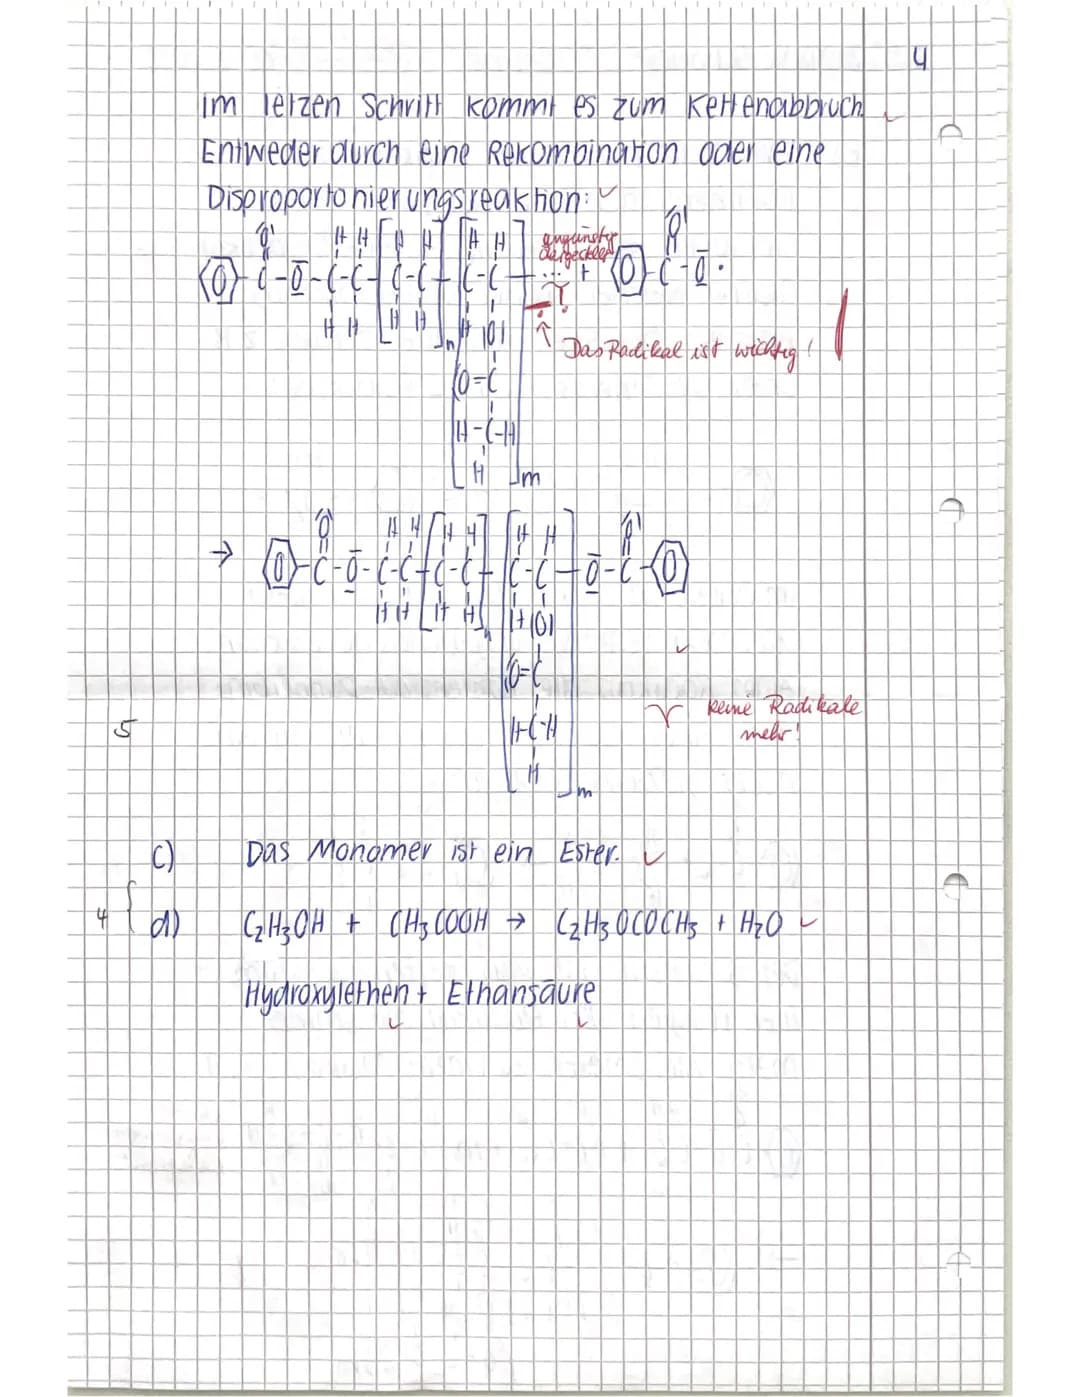 4
im letzen Schritt kommt es zum Kettenabbruch.
Entweder durch eine Rekombination oder eine
Disproportonierungsreaktion:
ungünstig
dargestellt
Das Radikal ist wichtig!
keine Radikale
mehr!
5
c) Das Monomer ist ein Ester.
4 { d) C2H3OH + CH3COOH → C2H3OCOCH3 + H2O
Hydroxylethen + Ethansäure